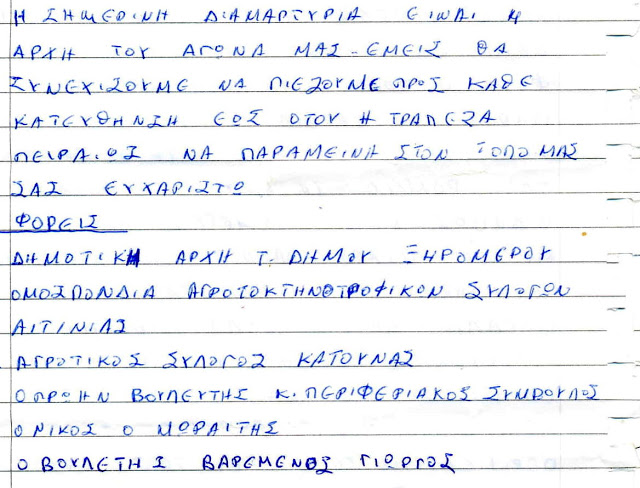 Η ΣΗΜΕΡΙΝΗ ΔΙΑΜΑΡΤΥΡΙΑ ΕΙΝΑΙ Η
ΑΡΧΗ ΤΟΥ ΑΓΩΝΑ ΜΑΣ - ΕΜΕΙΣ ΘΑ
ΣΥΝΕΧΙΣΟΥΜΕ ΝΑ ΠΙΕΖΟΥΜΕ ΠΡΟΣ ΚΑΘΕ
ΚΑΤΕΥΘΗΝΣΗ ΕΩΣ ΟΤΟΥ Η ΤΡΑΠΕΖΑ
ΠΕΙΡΑΙΩΣ ΝΑ ΠΑΡΑΜΕΙΝΗ ΣΤΟΝ ΤΟΠΟ ΜΑΣ
ΣΑΣ ΕΥΧΑΡΙΣΤΩ
ΦΟΡΕΙΣ
ΔΗΜΟΤΙΚΗ ΑΡΧΗ Τ. ΔΗΜΟΥ ΞΗΡΟΜΕΡΟΥ
ΟΜΟΣΠΟΝΔΙΑ ΑΓΡΟΤΟΚΤΗΝΟΤΡΟΦΙΚΟΝ ΣΥΛΟΓΩΝ
ΑΙΤΙΝΙΑΣ
ΑΓΡΟΤΙΚΟΣ ΣΥΛΟΓΟΣ ΚΑΤΟΥΝΑΣ
Ο ΠΡΩΗΝ ΒΟΥΛΕΥΤΗΣ Κ. ΠΕΡΙΦΕΡΙΑΚΟΣ ΣΥΜΒΟΥΛΟΣ
Ο ΝΙΚΟΣ Ο ΜΩΡΑΙΤΗΣ
Ο ΒΟΥΛΕΤΗΣ ΒΑΡΕΜΕΝΟΣ ΓΙΩΡΓΟΣ